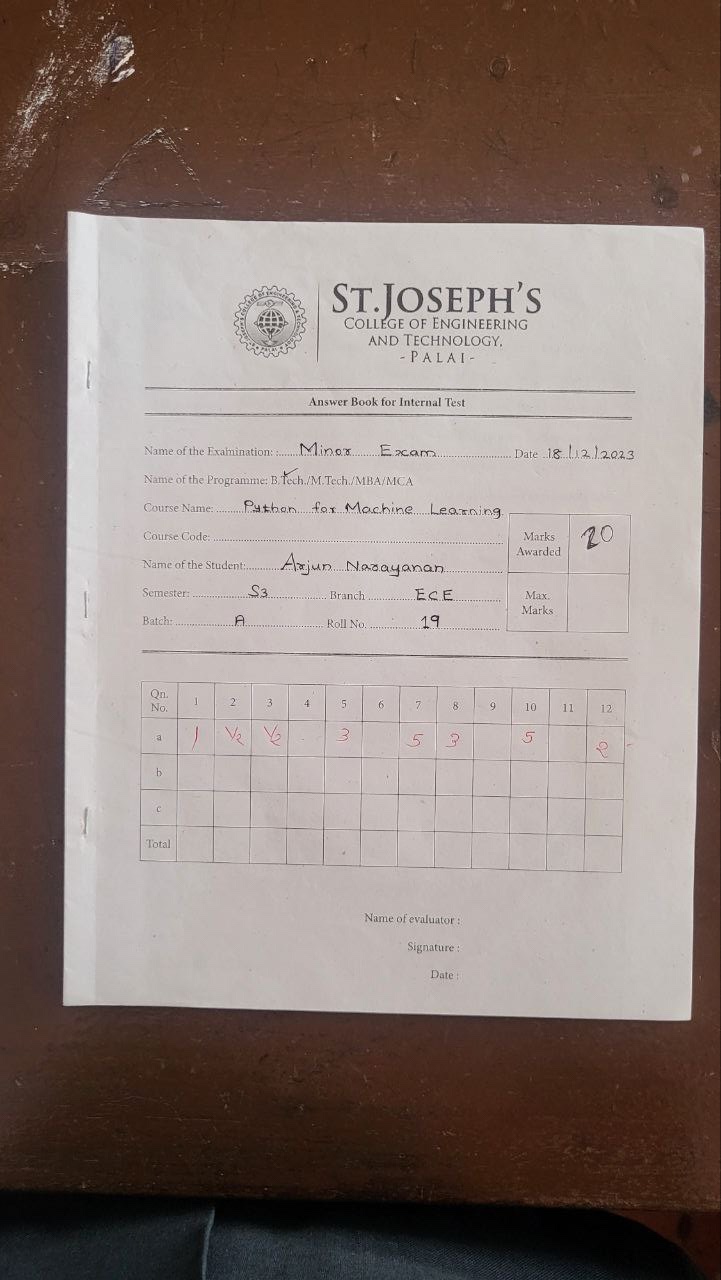 ST.JOSEPH'S
COLLEGE OF ENGINEERING
AND TECHNOLOGY,
- PALAI -
Answer Book for Internal Test
Name of the Examination: Minor Exam Date 18/12/2023
Name of the Programme: B.Tech./M.Tech./MBA/MCA
Course Name: Python for Machine Learning
Course Code:
Marks Awarded 20
Name of the Student: Arjun Narayanan
Semester: S3 Branch ECE
Max. Marks
Batch: A Roll No. 19
Qn. No. 1 2 3 4 5 6 7 8 9 10 11 12
a 1 1/2 1/2 3 5 3 5 2
b
c
Total
Name of evaluator :
Signature :
Date :